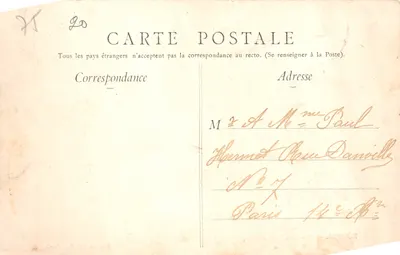 75 20
CARTE POSTALE
Tous les pays étrangers n'acceptent pas la correspondance au recto. (Se renseigner à la Poste).
Correspondance
Adresse
M r & Mme Paul
Rue Danville
No 7
Paris 14e